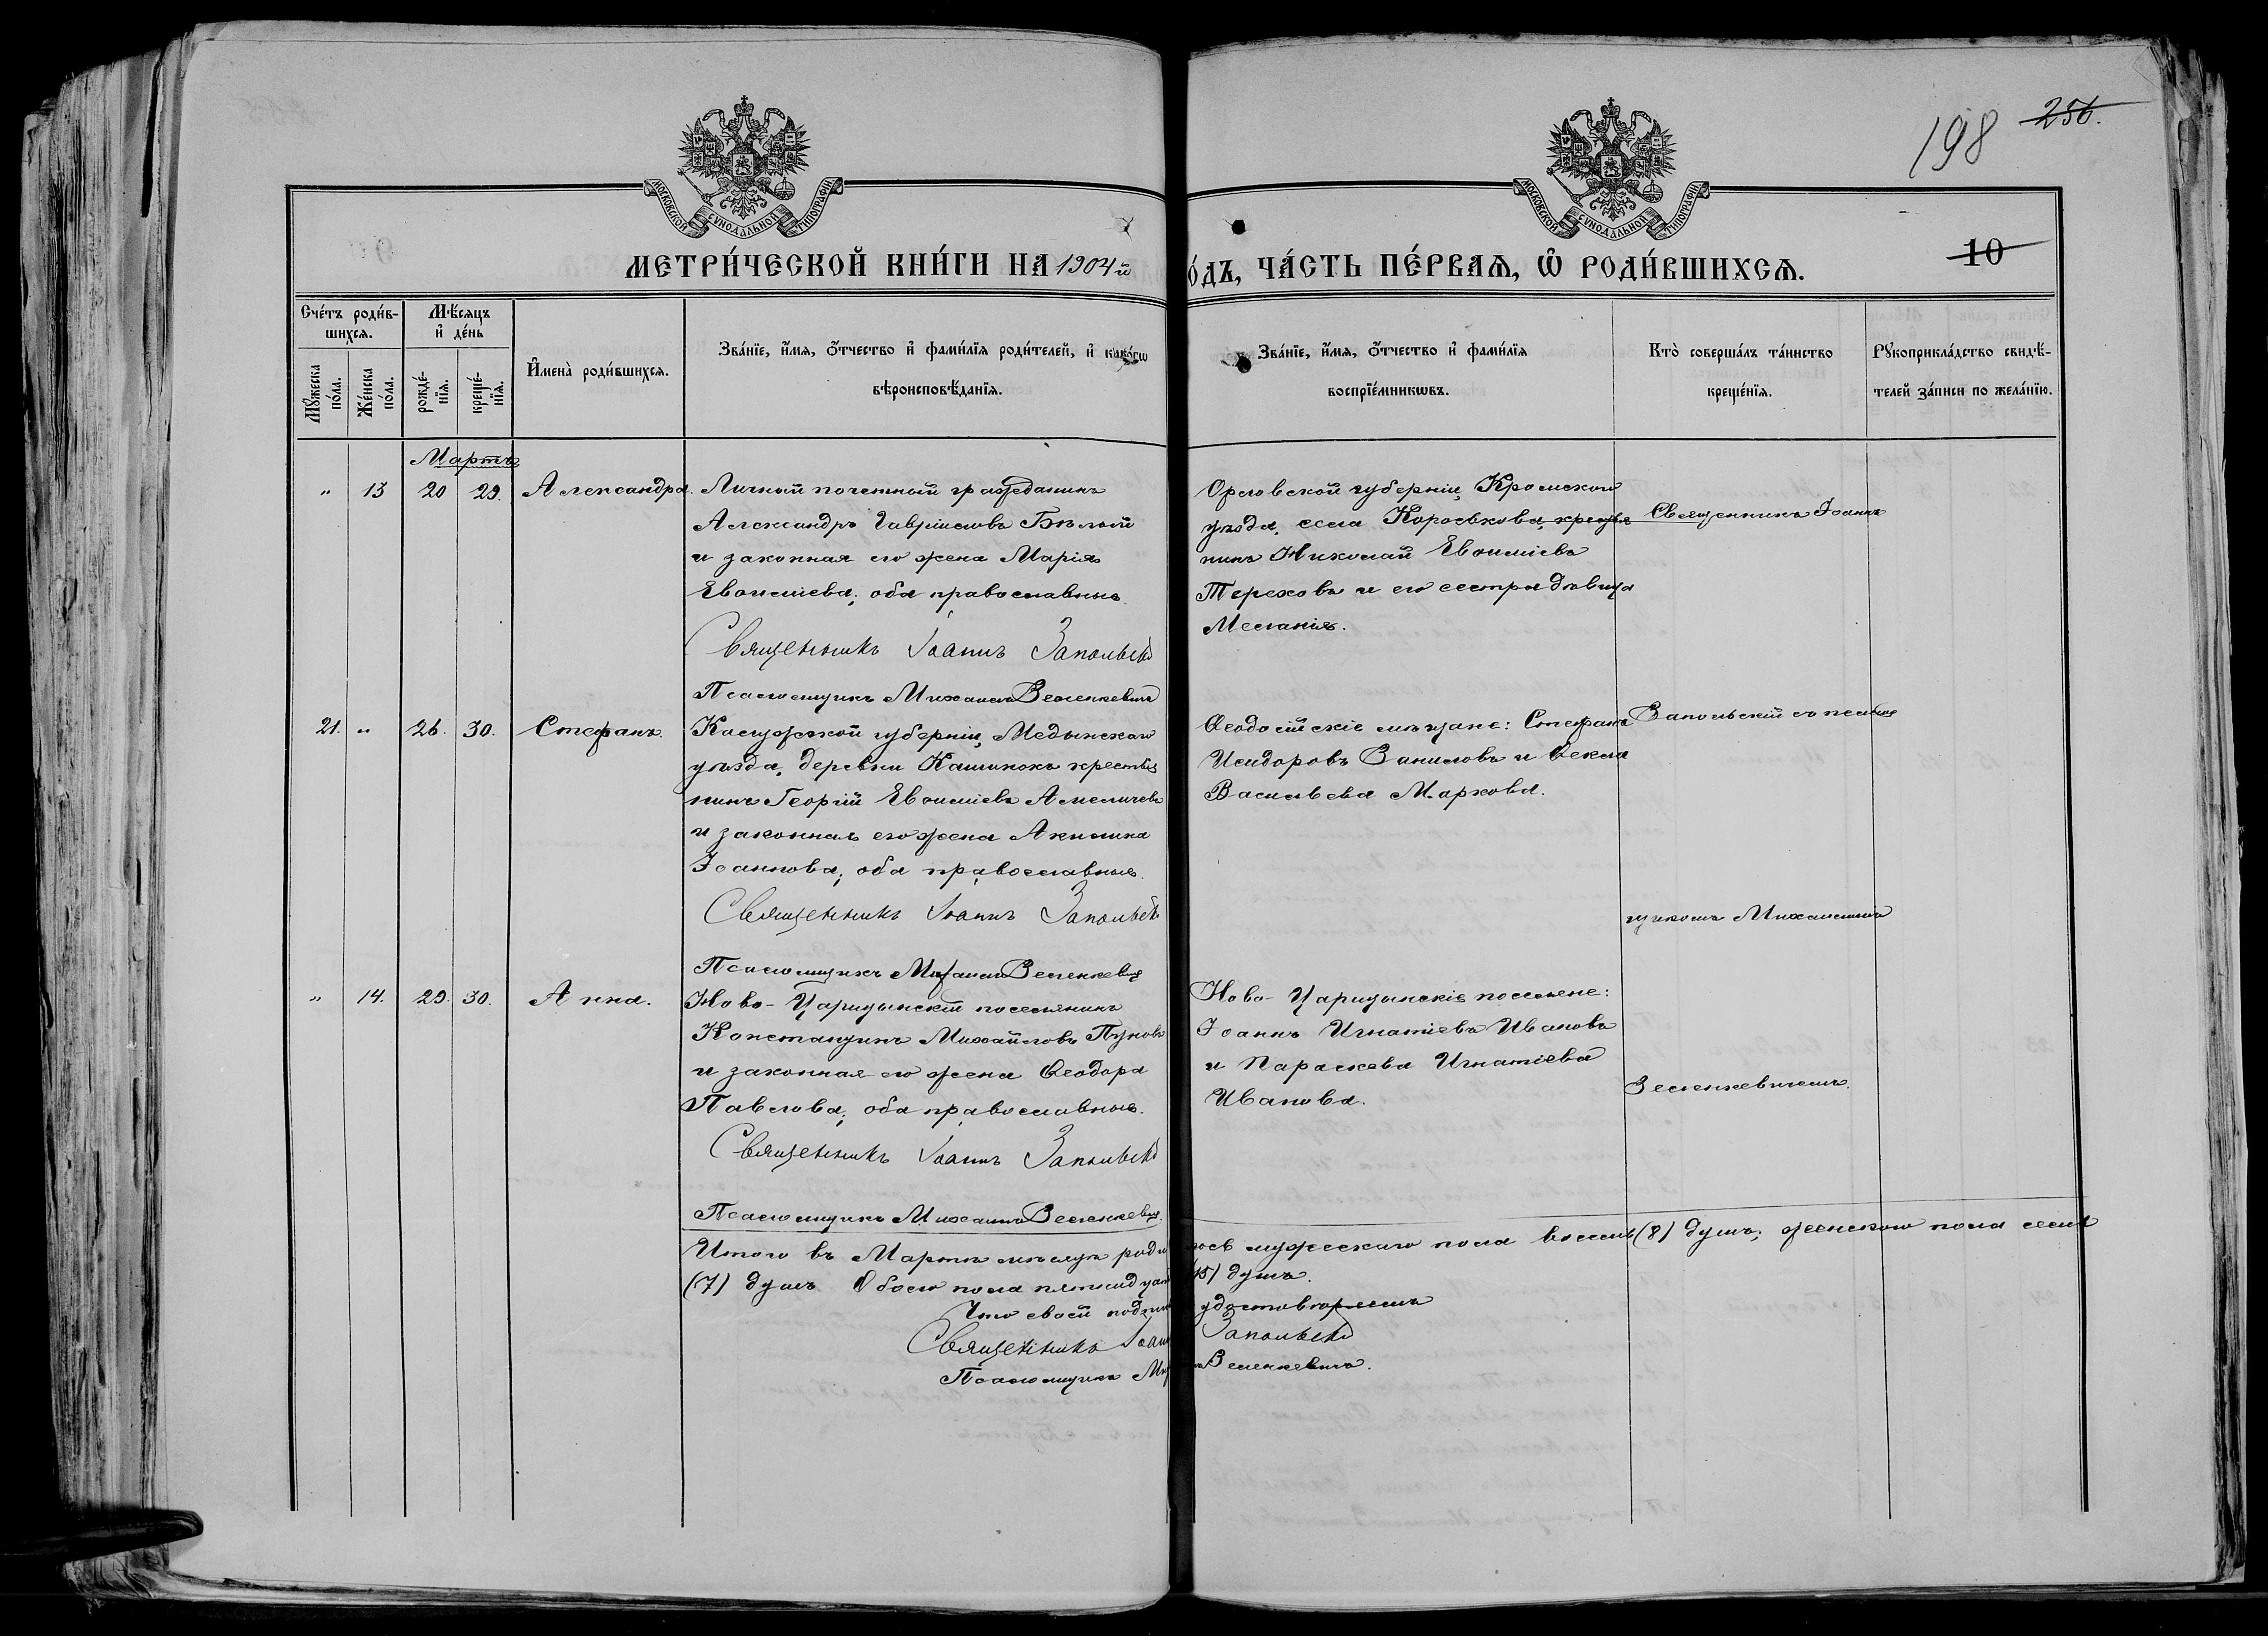 198 256.
МОСКОВСКОЙ СѴНОДАЛЬНОЙ ТИПОГРАФІИ
МОСКОВСКОЙ СѴНОДАЛЬНОЙ ТИПОГРАФІИ
МЕТРИ́ЧЕСКОЙ КНИ́ГИ НА 1904 й
О́ДЪ, ЧА́СТЬ ПЕ́РВАѦ, Ѡ РОДИ́ВШИХСѦ.
10
Сче́тъ роди́в-
шихсѧ.
Мꙋжеска по́ла.
Же́нска по́ла.
Мѣ́сѧцъ
и҆ де́нь
рожде́-
нїѧ.
креще́-
нїѧ.
И҆мена̀ роди́вшихсѧ.
Зва́нїе, и҆́мѧ, ѻ҆́тчество и҆ фами́лїѧ роди́телей, и҆ како́гѡ
вѣроисповѣ́данїѧ.
Зва́нїе, и҆́мѧ, ѻ҆́тчество и҆ фами́лїѧ
воспрїе́мникѡвъ.
Кто̀ соверша́лъ та́инство
креще́нїѧ.
Рꙋкоприкла́дство свидѣ́-
телей за́писи по жела́нїю.
Мартъ
" 13 20 29. Александра.
Личный почетный гражданинъ
Александръ Гавріиловъ Бѣлый
и законная его жена Марія
Евоиміева; оба православные
Священникъ Іоаннъ Запольскій
Псаломщикъ Михаилъ Зеленкевичъ
Орловской губерніи, Кромского
уѣзда, села Коровкова, крестья
нинъ Николай Евоиміевъ
Тереховъ и его сестра дѣвица
Меланія.
Священникъ Іоаннъ
21. " 26. 30. Стефанъ.
Калужской губерніи, Медынского
уѣзда, деревни Кашинокъ крестья
нинъ Георгій Евоиміевъ Амеличевъ
и законная его жена Акилина
Іоаннова; оба православные.
Священникъ Іоаннъ Запольскій
Псаломщикъ Михаилъ Зеленкевич
Ѳеодосійскіе мѣщане: Стефанъ
Исидоровъ Ваниловъ и Ѳекла
Васильева Маркова.
Запольскій съ псалом
щикомъ Михаиломъ
" 14. 29. 30. Анна.
Ново-Царицынскій поселянинъ
Константинъ Михайловъ
и законная его жена Ѳеодора
Павлова; оба православные.
Священникъ Іоаннъ Запольскій
Псаломщикъ Михаилъ Зеленкевич.
Ново-Царицынскіе поселяне:
Іоаннъ Игнатіевъ Ивановъ
и Параскева Игнатіева
Иванова.
Зеленкевичемъ.
Итого въ Мартѣ мѣсяцѣ роди лось мужескаго пола восемь (8) душъ; женскаго пола семь
(7) душъ Обоего пола пятнадцать (15) душъ.
Что своей подпи удостовѣряемъ
Священникъ Іоан Запольскій
Псаломщикъ Ми Зеленкевичъ.